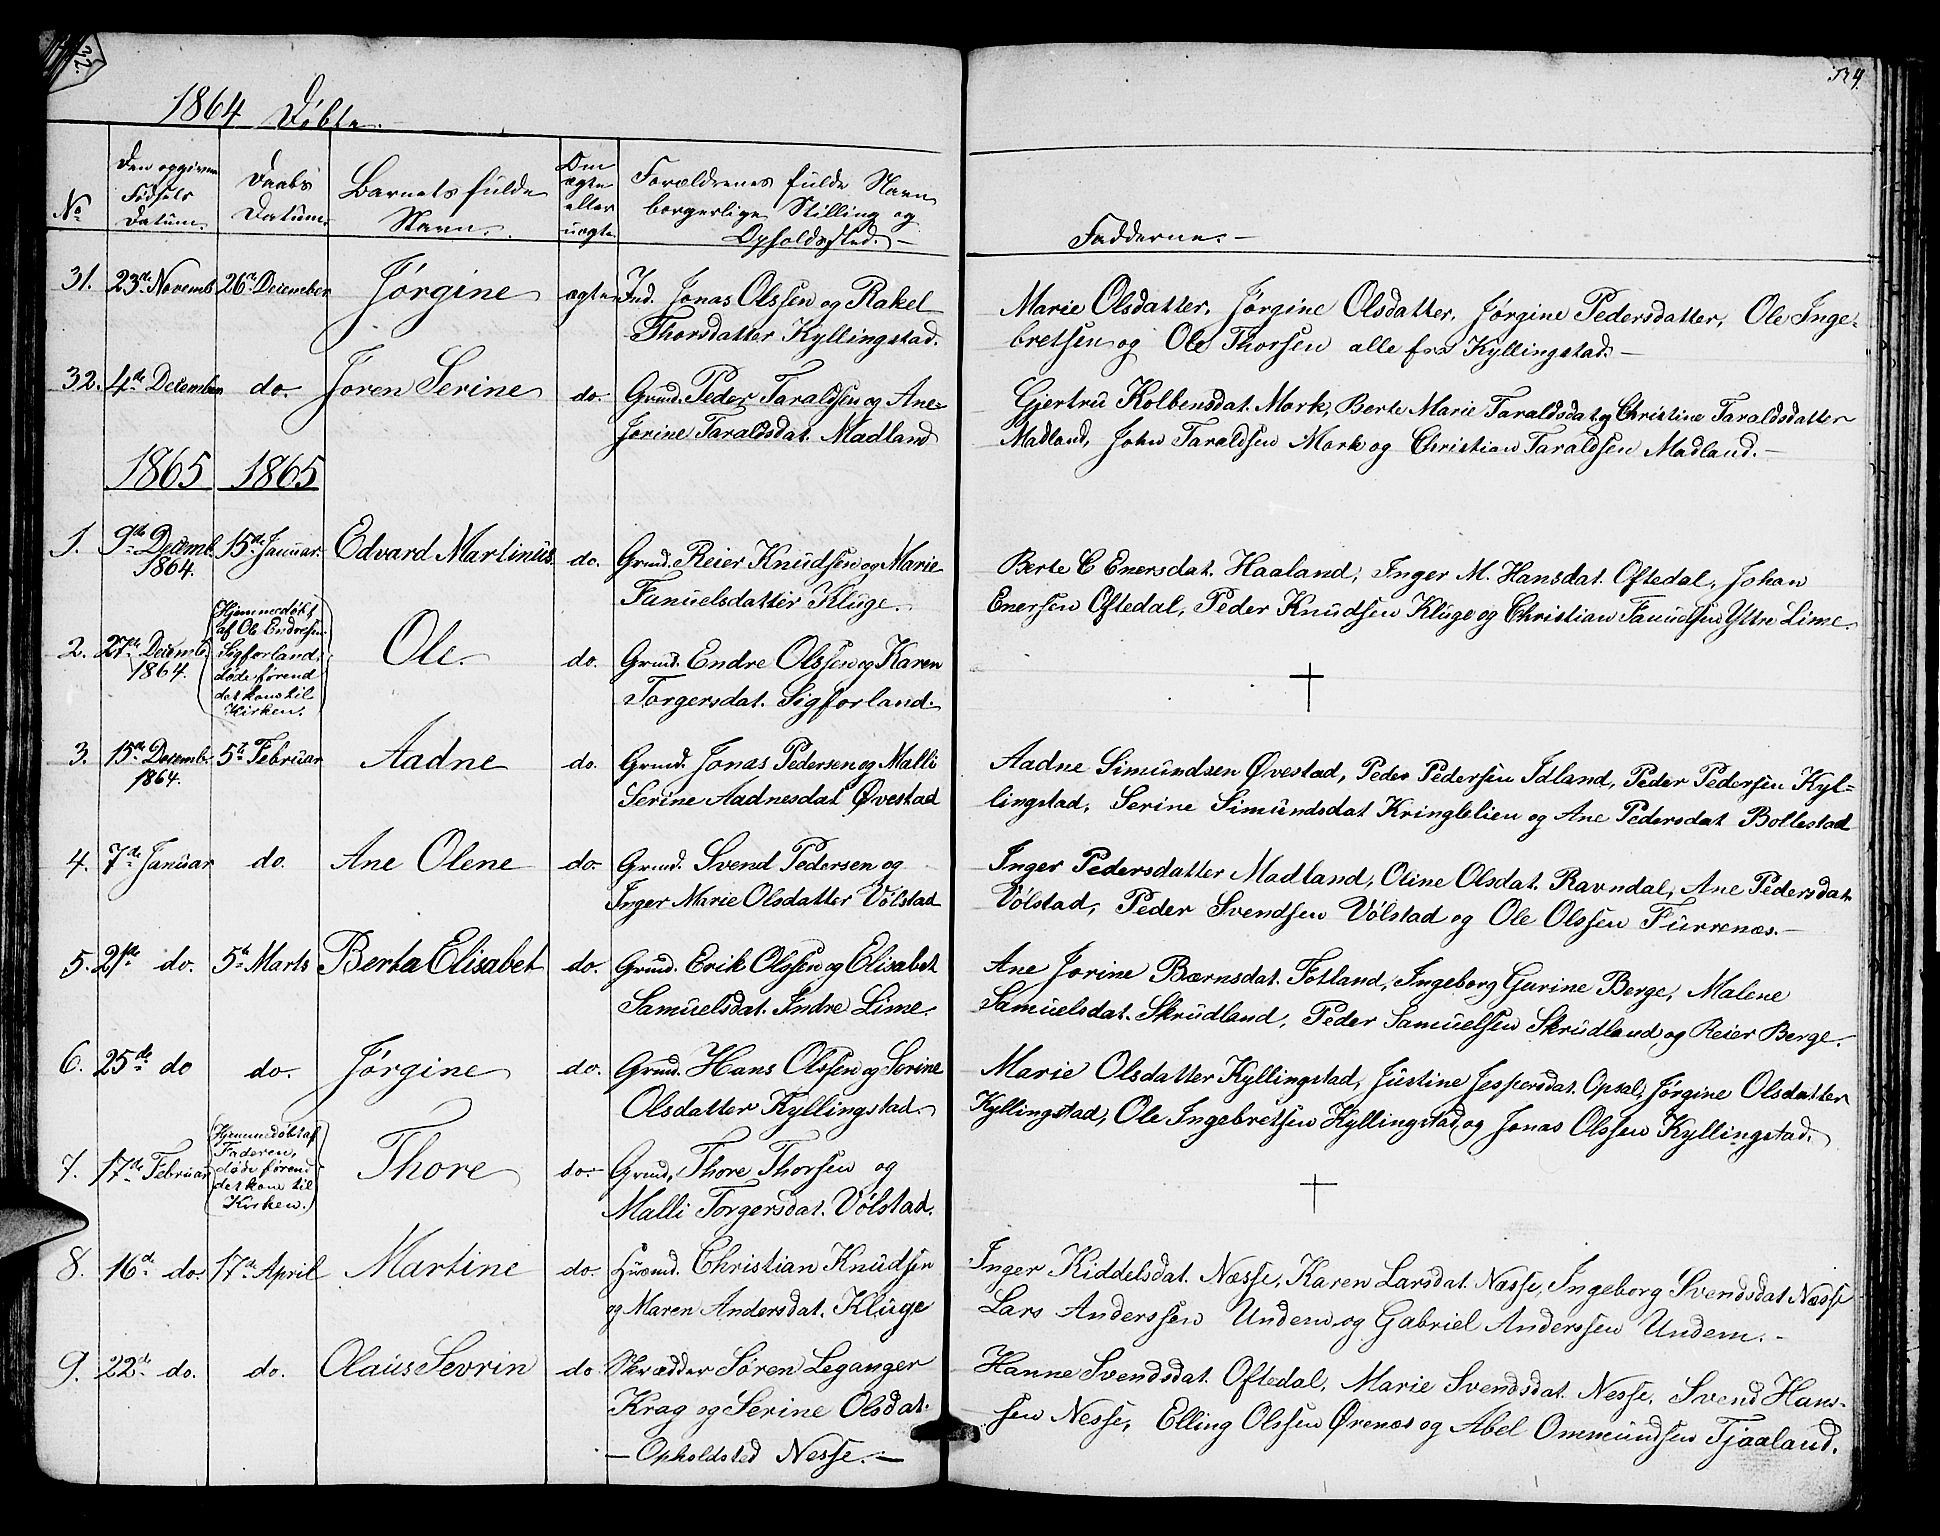 22.
1864 Döbte.
No
Den opgivne Födsels Datum.
Daabs Datum.
Barnets fulde Navn.
Om ægte eller uægte
Forældrenes fulde Navn borgerlige Stilling og Opholdssted.
Fadderne.
31. 23de Novemb. 26de December Jörgine ægte Ind. Jonas Olssen og Rakel
Thorsdatter Kyllingstad.
Marie Olsdatter, Jörgine Olsdatter, Jörgine Pedersdatter, Ole Inge-
bretsen og Ole Thorsen alle fra Kyllingstad.
32. 4de December do. Joren Serine do. Grmd. Peder Taraldsen og Ane
Jorine Taraldsdat. Madland
Gjertru Kolbensdat. Mork, Berte Marie Taraldsdat og Christine Taraldsdatter
Madland, John Taraldsen Mork og Christian Taraldsen Madland.
1865 1865
1. 9de Decemb. 1864. 15de Januar. Edvard Martinus do. Grmd. Reier Knudsen og Marie
Fanuelsdatter Kluge.
Berte C Enersdat. Haaland, Inger M. Hansdat. Oftedal, Johan
Enersen Oftedal, Peder Knudsen Kluge og Christian Fanuelsen Yttre Lime.
2. 27de Decemb. 1864. (Hjemmedöbt af Ole Endresen Sigforland, döde förend det kom til Kirken.) Ole. do. Grmd. Endre Olssen og Karen
Torgersdat. Sigforland.
3. 15de Decemb. 1864. 5te Februar Aadne do. Grmd. Jonas Pedersen og Malli
Serine Aadnesdat Øvestad
Aadne Simundsen Øvestad, Peder Pedersen Idland, Peder Pedersen Kyl=
lingstad, Serine Simundsdat Kringlelien og Ane Pedersdat Bollestad
4. 7de Januar do. Ane Olene do. Grmd. Svend Pedersen og
Inger Marie Olsdatter Völstad
Inger Pedersdatter Madland, Oline Olsdat. Ravndal, Ane Pedersdat.
Völstad, Peder Svendsen Völstad og Ole Olssen Furrenæs.
5. 21de do. 5te Marts Berta Elisabet do. Grmd. Erik Olssen og Elisabet
Samuelsdat. Indre Lime.
Ane Jorine Bærnsdat. Fotland, Ingeborg Gurine Berge, Malene
Samuelsdat. Skrudland, Peder Samuelsen Skrudland og Reier Berge.
6. 25de do do. Jörgine do. Grmd. Hans Olssen og Serine
Olsdatter Kyllingstad.
Marie Olsdatter Kyllingstad, Justine Jespersdat. Opsal, Jörgine Olsdatter
Kyllingstad, Ole Ingebretsen Kyllingstad og Jonas Olssen Kyllingstad.
7. 17de Februar (Hjemmedöbt af Faderen, döde förend det kom til Kirken.) Thore do. Grmd. Thore Thorsen og
Malli Torgersdat. Völstad.
8. 16de do. 17de April Martine do. Husmd. Christian Knudsen
og Maren Andersdat. Kluge
Inger Kiddelsdat. Næsse, Karen Larsdat. Næsse, Ingeborg Svendsdat Næsse
Lars Anderssen Undem og Gabriel Anderssen Undem.
9. 22de do. do. Olaus Sevrin do. Skrædder Sören Leganger
Krag og Serine Olsdat.
Opholdsted Nesse.
Hanne Svendsdat. Oftedal, Marie Svendsdat. Nesse, Svend Hans-
sen Nesse, Elling Olssen Örenæs og Abel Ommundsen Tjaaland.